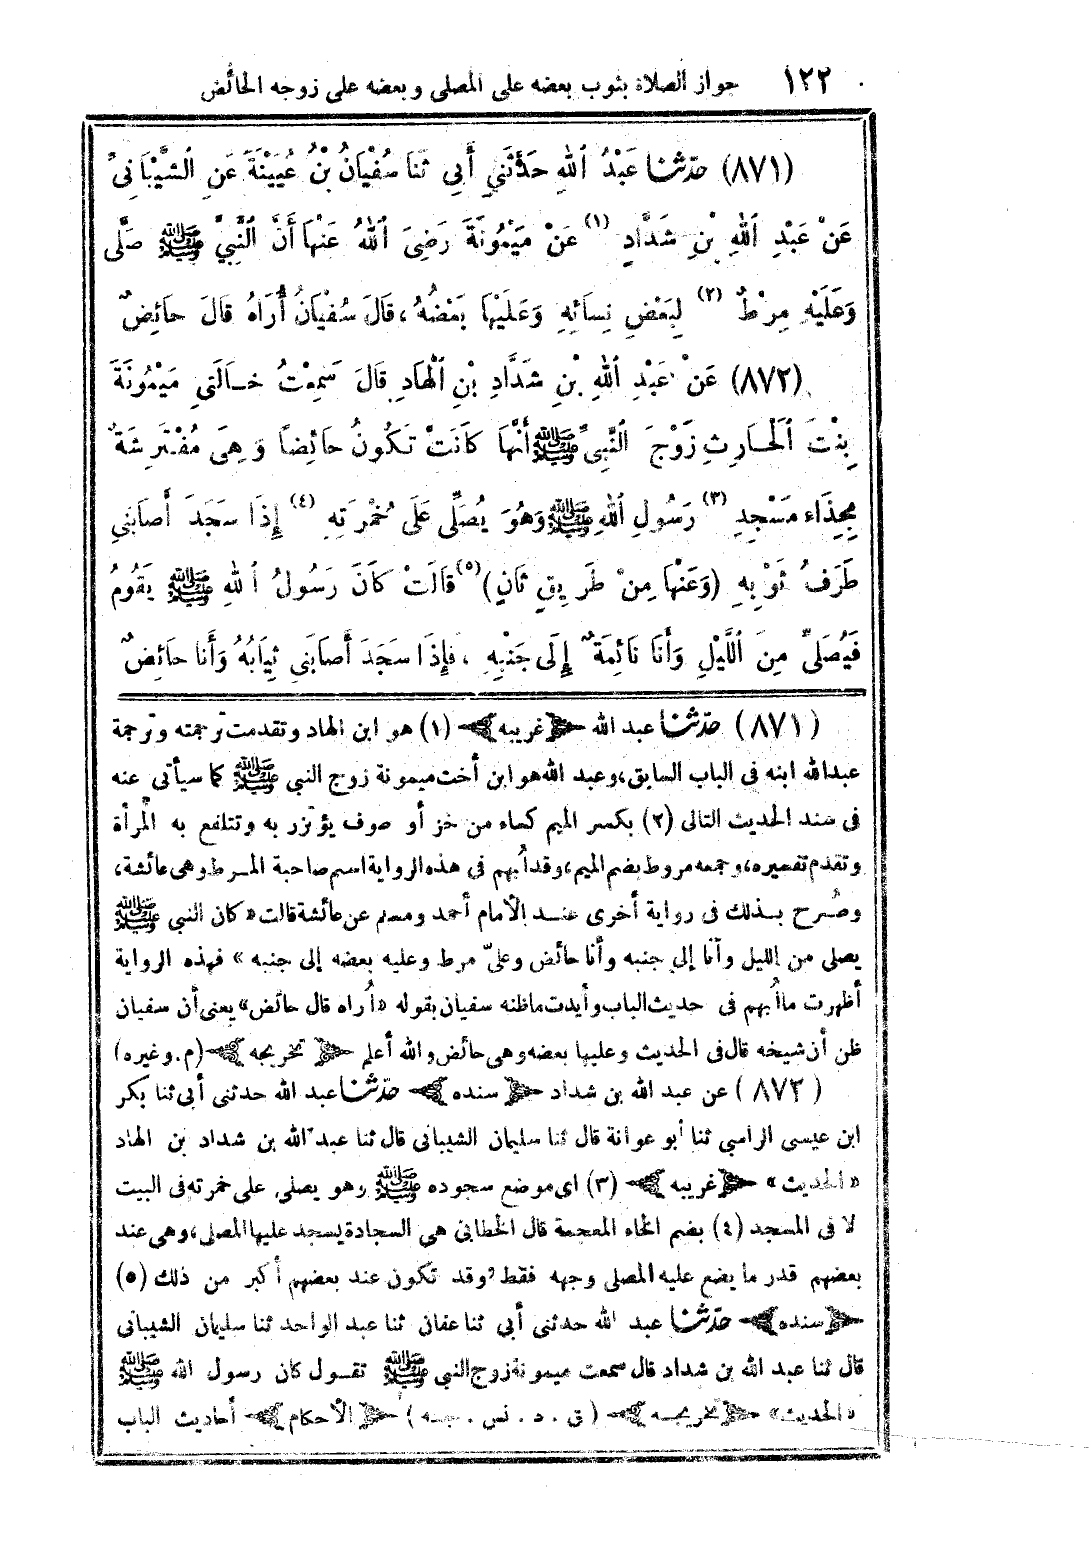 ١٢٢ جواز الصلاة بثوب بعضه على المصلى وبعضه على زوجه الحائض
(٨٧١) حدّثنا عَبْدُ اللهِ حَدَّثَنِي أَبِي ثَنَا سُفْيَانُ بْنُ عُيَيْنَةَ عَنِ الشَّيْبَانِىِّ
عَنْ عَبْدِ اللهِ بْنِ شَدَّادٍ (١) عَنْ مَيْمُونَةَ رَضِىَ اللهُ عَنْهَا أَنَّ النَّبِيَّ ﷺ صَلَّى
وَعَلَيْهِ مِرْطٌ (٢) لِبَعْضِ نِسَائِهِ وَعَلَيْهَا بَعْضُهُ ، قَالَ سُفْيَانُ أُرَاهُ قَالَ حَائِضٌ
(٨٧٢) عَنْ عَبْدِ اللهِ بْنِ شَدَّادِ بْنِ الْهَادِ قَالَ سَمِعْتُ خَالَتِي مَيْمُونَةَ
بِنْتَ الْحَارِثِ زَوْجَ النَّبِىِّ ﷺ أَنَّهَا كَانَتْ تَكُونُ حَائِضًا وَهِىَ مُفْتَرِشَةٌ
بِحِذَاءِ مَسْجِدِ (٣) رَسُولِ اللهِ ﷺ وَهُوَ يُصَلِّى عَلَى خُمْرَتِهِ (٤) إِذَا سَجَدَ أَصَابَنِي
طَرَفُ ثَوْبِهِ (وَعَنْهَا مِنْ طَرِيقٍ ثَانٍ) (٥) قَالَتْ كَانَ رَسُولُ اللهِ ﷺ يَقُومُ
فَيُصَلِّى مِنَ اللَّيْلِ وَأَنَا نَائِمَةٌ إِلَى جَنْبِهِ ، فَإِذَا سَجَدَ أَصَابَنِي ثِيَابُهُ وَأَنَا حَائِضٌ
(٨٧١) حدّثنا عبد الله ﴿غريبه﴾ (١) هو ابن الهاد وتقدمت ترجمته وترجمة
عبدالله ابنه فى الباب السابق، وعبد الله هو ابن أخت ميمونة زوج النبي ﷺ كما سيأتى عنه
فى سند الحديث التالى (٢) بكسر الميم كساء من خز أو صوف يؤتزر به وتتلفع به المرأة
وتقدم تفسيره، وجمعه مروط بضم الميم، وقد أبهم فى هذه الرواية اسم صاحبة المرط وهى عائشة،
وصُرح بذلك فى رواية أخرى عند الأمام أحمد ومسلم عن عائشة قالت «كان النبي ﷺ
يصلى من الليل وأنا إلى جنبه وأنا حائض وعلىّ مرط وعليه بعضه إلى جنبه» فهذه الرواية
أظهرت ما أُبهم فى حديث الباب وأيدت ماظنه سفيان بقوله «أُراه قال حائض» يعنى أن سفيان
ظن أن شيخه قال فى الحديث وعليها بعضه وهى حائض والله أعلم ﴿تخريجه﴾ (م. وغيره)
(٨٧٢) عن عبد الله بن شداد ﴿سنده﴾ حدّثنا عبد الله حدثنى أبى ثنا بكر
ابن عيسى الراسبي ثنا أبو عوانة قال ثنا سليمان الشيبانى قال ثنا عبد الله بن شداد بن الهاد
«الحديث» ﴿غريبه﴾ (٣) اى موضع سجوده ﷺ وهو يصلى على خمرته فى البيت
لا فى المسجد (٤) بضم الخاء المعجمة قال الخطابى هى السجادة يسجد عليها المصلى، وهى عند
بعضهم قدر ما يضع عليه المصلى وجهه فقط، وقد تكون عند بعضهم أكبر من ذلك (٥)
﴿سنده﴾ حدّثنا عبد الله حدثنى أبى ثنا عفان ثنا عبد الواحد ثنا سليمان الشيبانى
قال ثنا عبد الله بن شداد قال سمعت ميمونة زوج النبي ﷺ تقول كان رسول الله ﷺ
«الحديث» ﴿تخريجه﴾ (ق . د . نس . جه) ﴿الأحكام﴾ أحاديث الباب